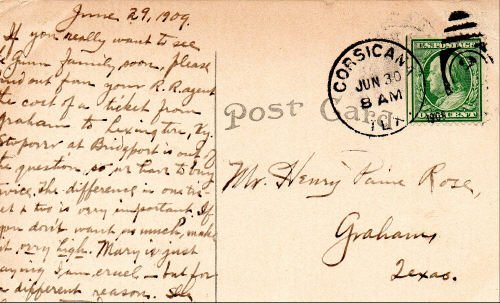 June 29, 1909.
If you really want to see
Gunn family, soon, please
find out from your R.R. agent
the cost of a ticket from
Graham to Lexington, Ky.
Stopover at Bridgport is out of
the question, so we have to buy
twice. The difference in one tic-
et & two is very important. If
you don't want as much, make
it very high. Mary is just
saying I am cruel — but for
a different reason.
Post Card
CORSICANA
JUN 30
8 AM
TEX.
U.S. POSTAGE
ONE CENT
Mr. Henry Paine Rose,
Graham,
Texas.